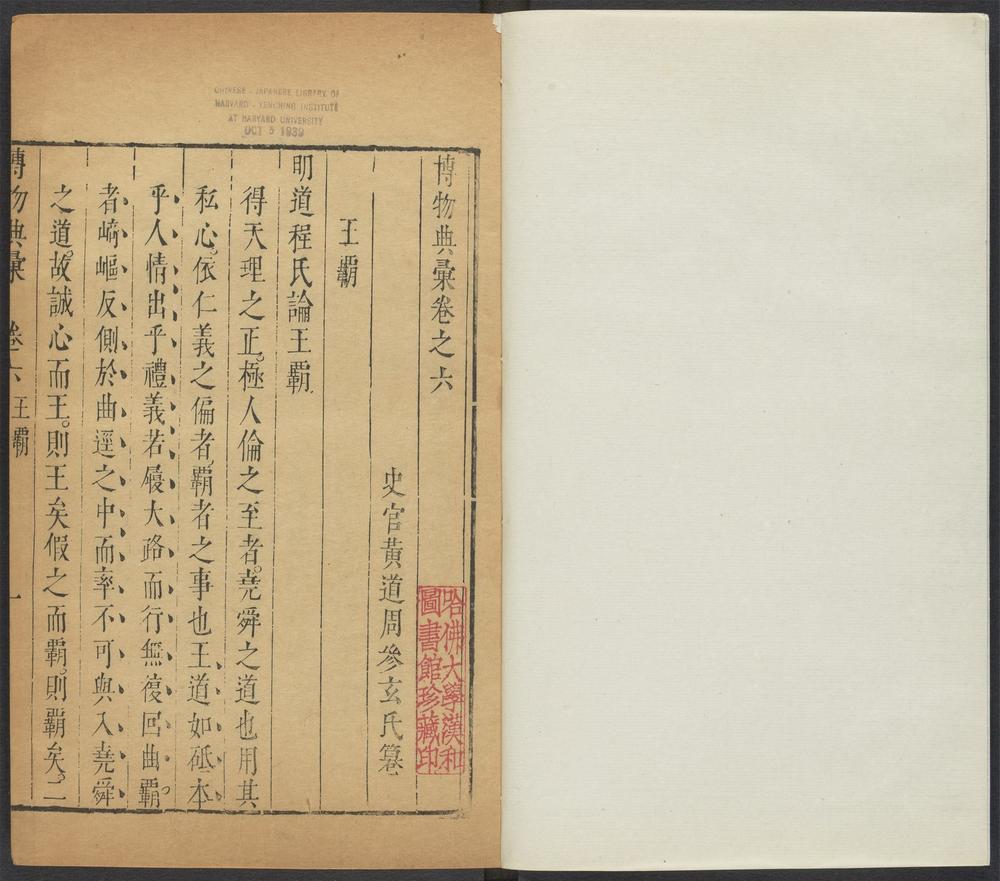 CHINESE - JAPANESE LIBRARY OF
HARVARD - YENCHING INSTITUTE
AT HARVARD UNIVERSITY
OCT 5 1939
博物典彙卷之六
哈佛大學漢和
圖書館珍藏印
史官黃道周參玄氏纂
王霸
明道程氏論王霸
得天理之正。極人倫之至者。堯舜之道也用其
私心。依仁義之偏者。霸者之事也王道如砥本
乎人情出乎禮義若履大路而行無復回曲。霸
者崎嶇反側於曲逕之中而率不可與入堯舜
之道。故誠心而王。則王矣假之而霸。則霸矣。二
博物典彙 卷六 王霸 一